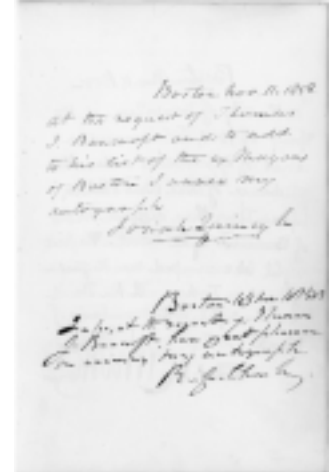 Boston Nov 11. 1858
at the request of Thomas
J. Bancroft and to add
to his list of the ex Mayors
of Boston I annex my
autograph
Josiah Quincy Jr
Boston
I, at the request of Thomas
Bancroft, have great pleasure
in my autograph